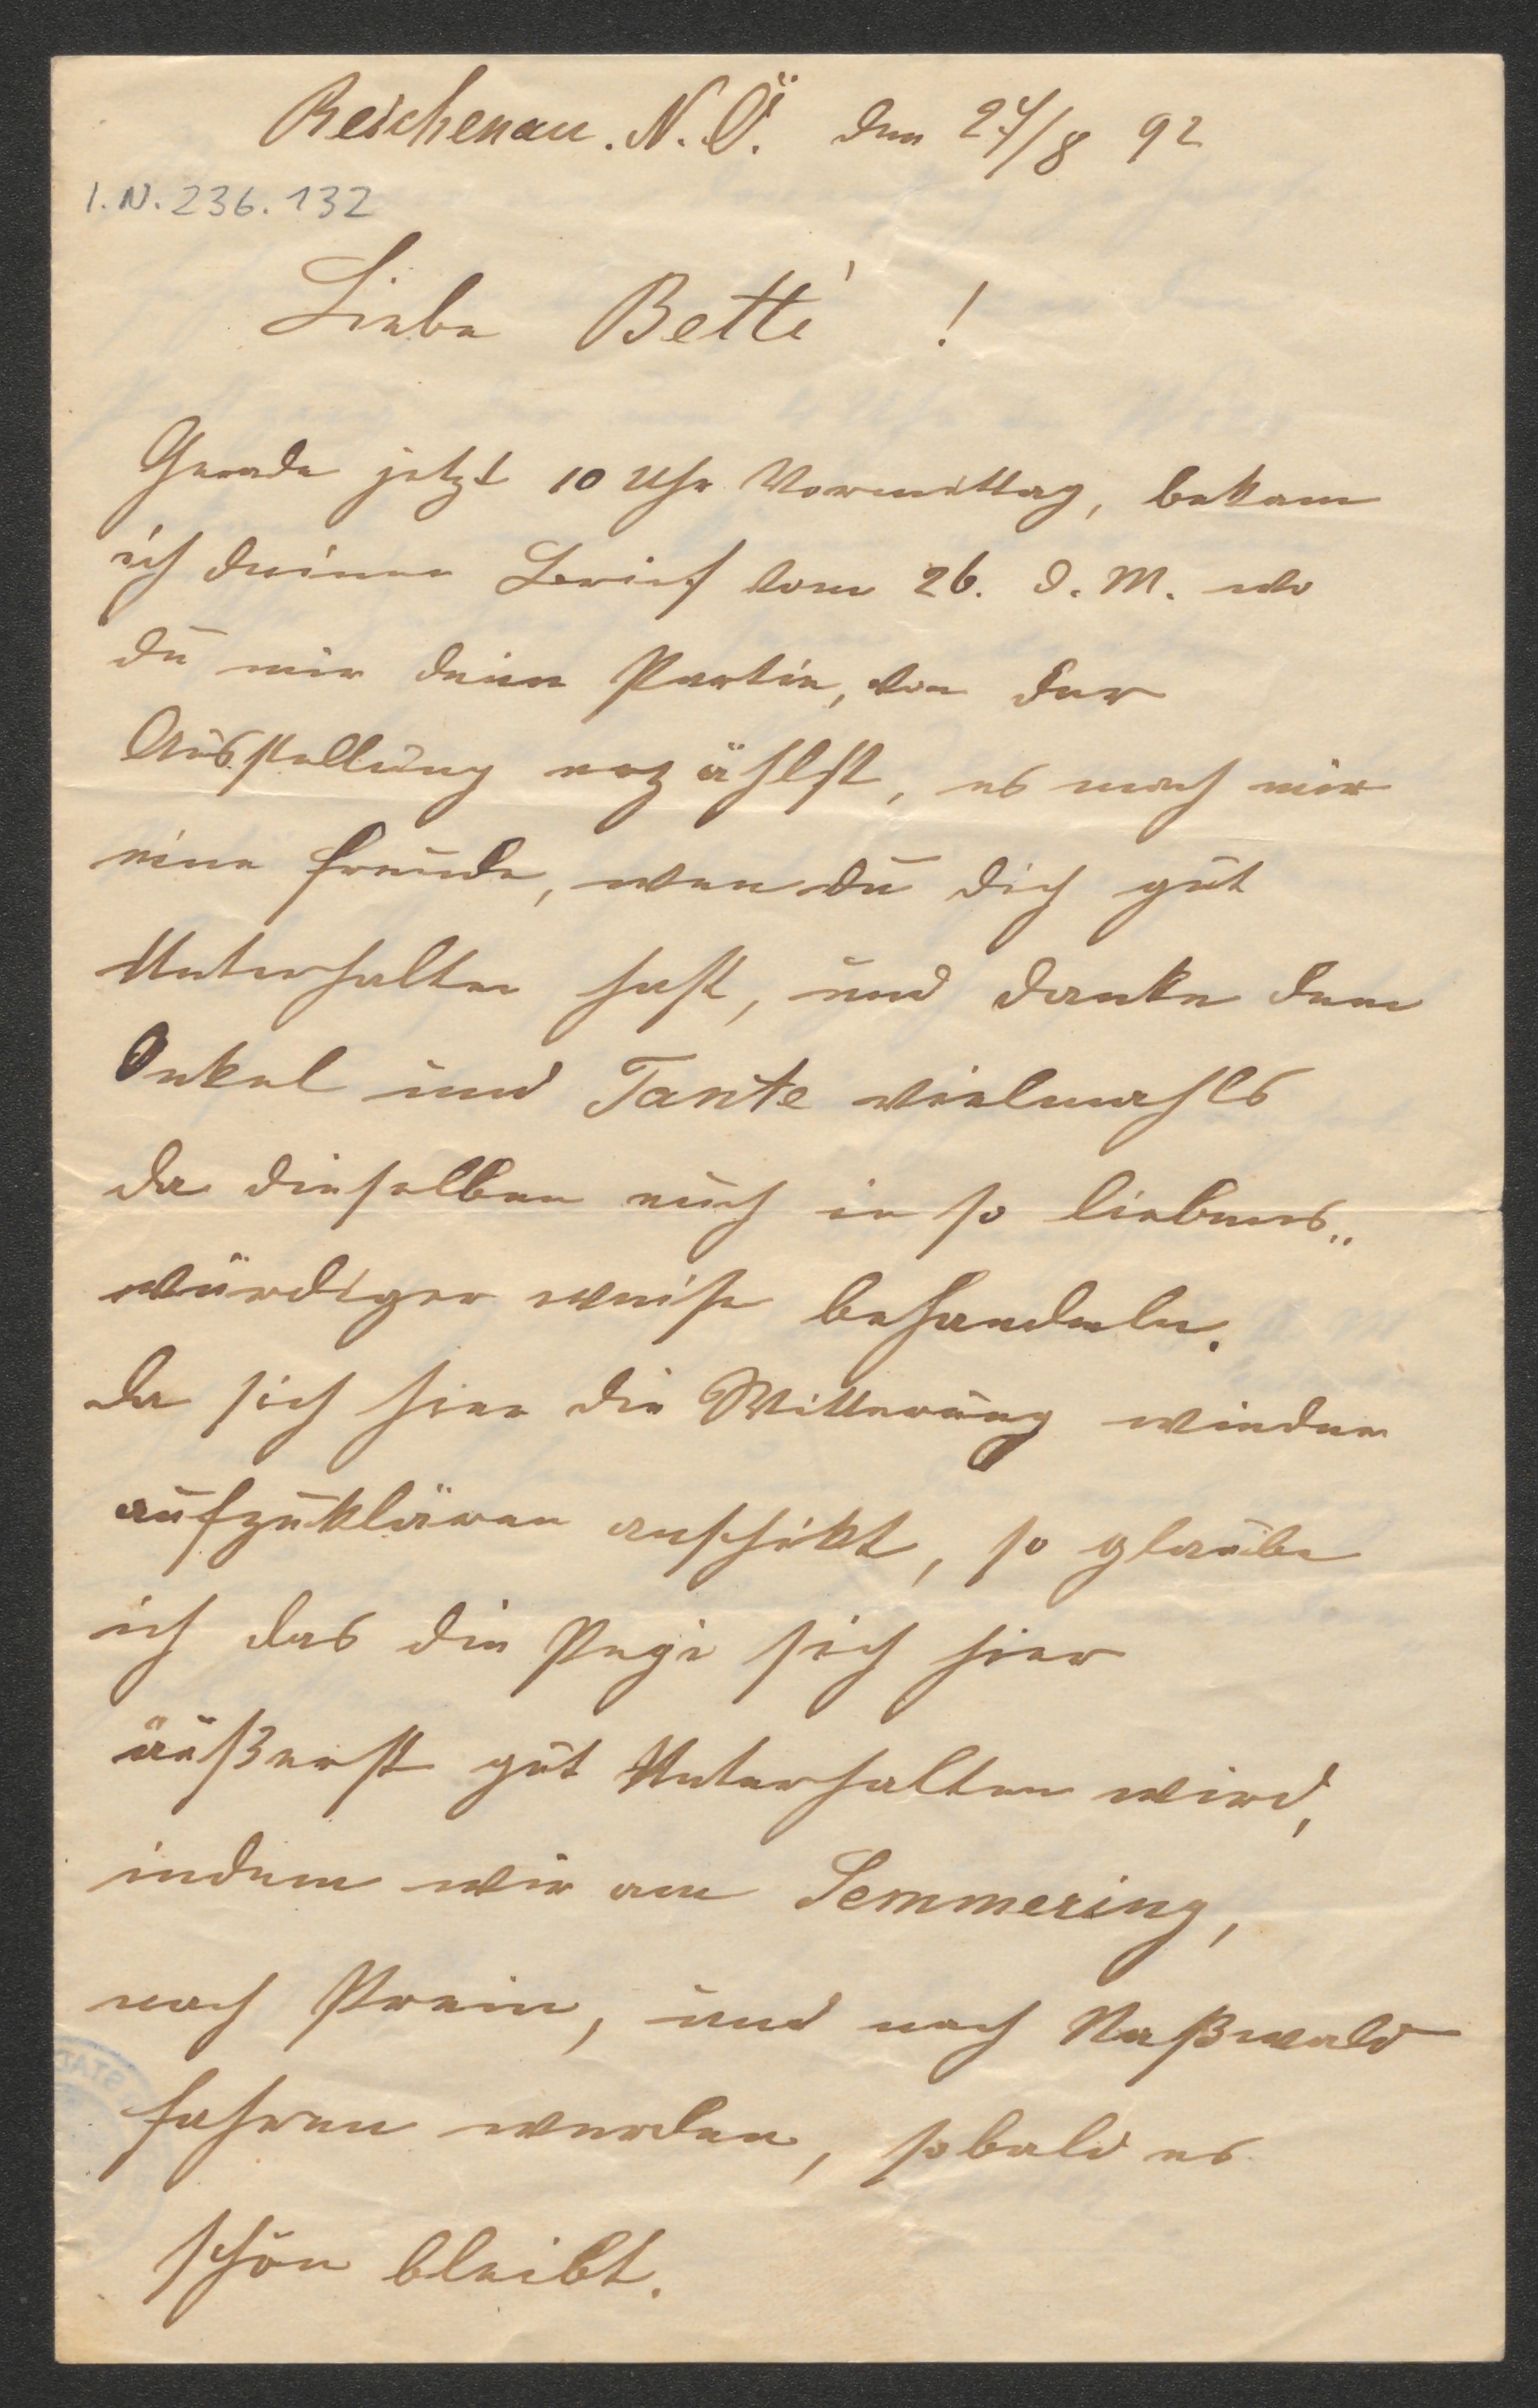 Reichenau. N. Ö. den 27/8 92
I.N. 236.132
Liebe Betti !
Gerade jetzt 10 Uhr Vormittag, bekam
ich deinen Brief vom 26. d. M. wo
du mir deine Partie, von der
Ausstellung erzählst, es mach mir
eine Freude, wen du dich gut
Unterhalten hast, und danke dem
Onkel und Tante vielmahls
da dieselben euch in so liebens„
würdiger weise behandeln.
da sich hier die Witterung wieder
aufzuklären anschikt, so glaube
ich das die Pepi sich hier
äußerst gut Unterhalten wird,
indem wir am Semmering,
nach Prein, und nach Naßwald
fahren werden, sobald es
schön bleibt.